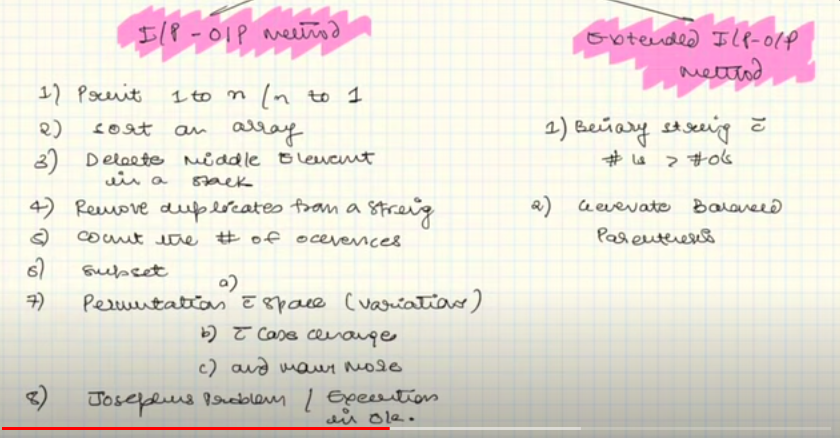 I/P - O/P method
1) Print 1 to n / n to 1
2) sort an array
3) Delete middle Element
in a stack
4) Remove duplicates from a string
5) count the # of occurences
6) subset
7) Permutation a) c̄ space (variation)
b) c̄ case change
c) and many more
8) Josephus Problem / Execution
in
Extended I/P-O/P
method
1) Binary string c̄
# 1s > # 0s
2) Generate Balanced
Parenthesis